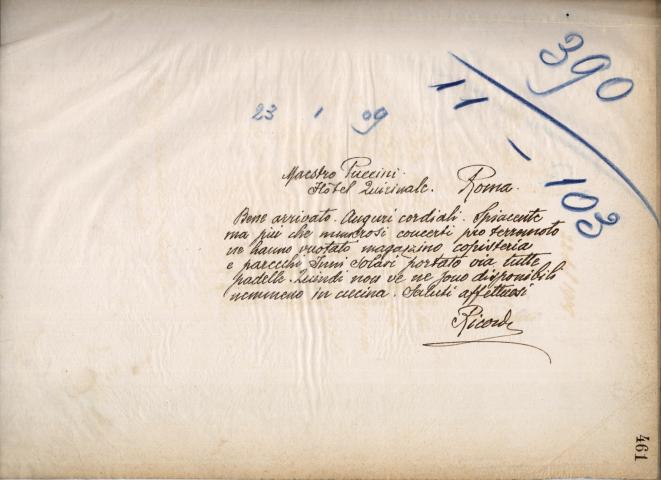 390
11 - 103
23 1 09
Maestro Puccini.
Hotel Quirinale. Roma.
Bene arrivato. Auguri cordiali. Spiacente
ma più che numerosi concerti pro terremoto
ve hanno vuotato magazzino, copisteria
e parecchi Inni Solari portato via tutte
padelle. Quindi non ve ne sono disponibili
nemmeno in cucina. Saluti affettuosi
Ricordi
461